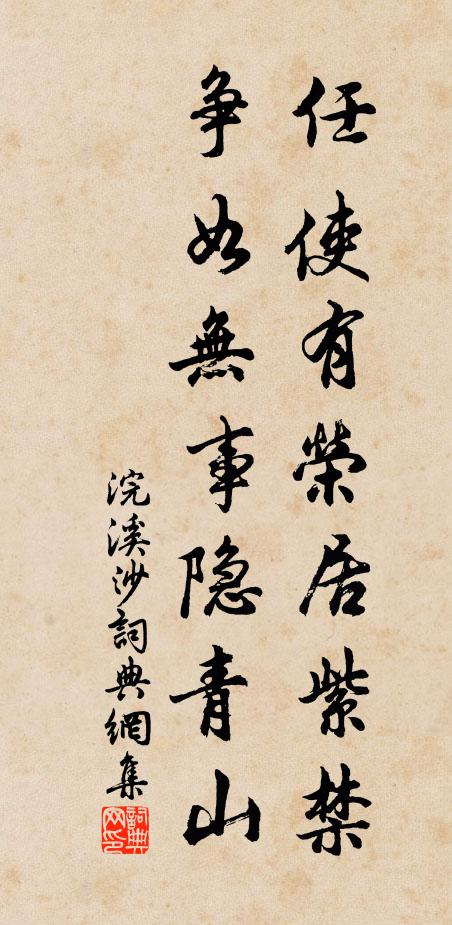 任使有榮居紫禁
争如無事隐青山
浣溪沙詞典網集
詞典网印